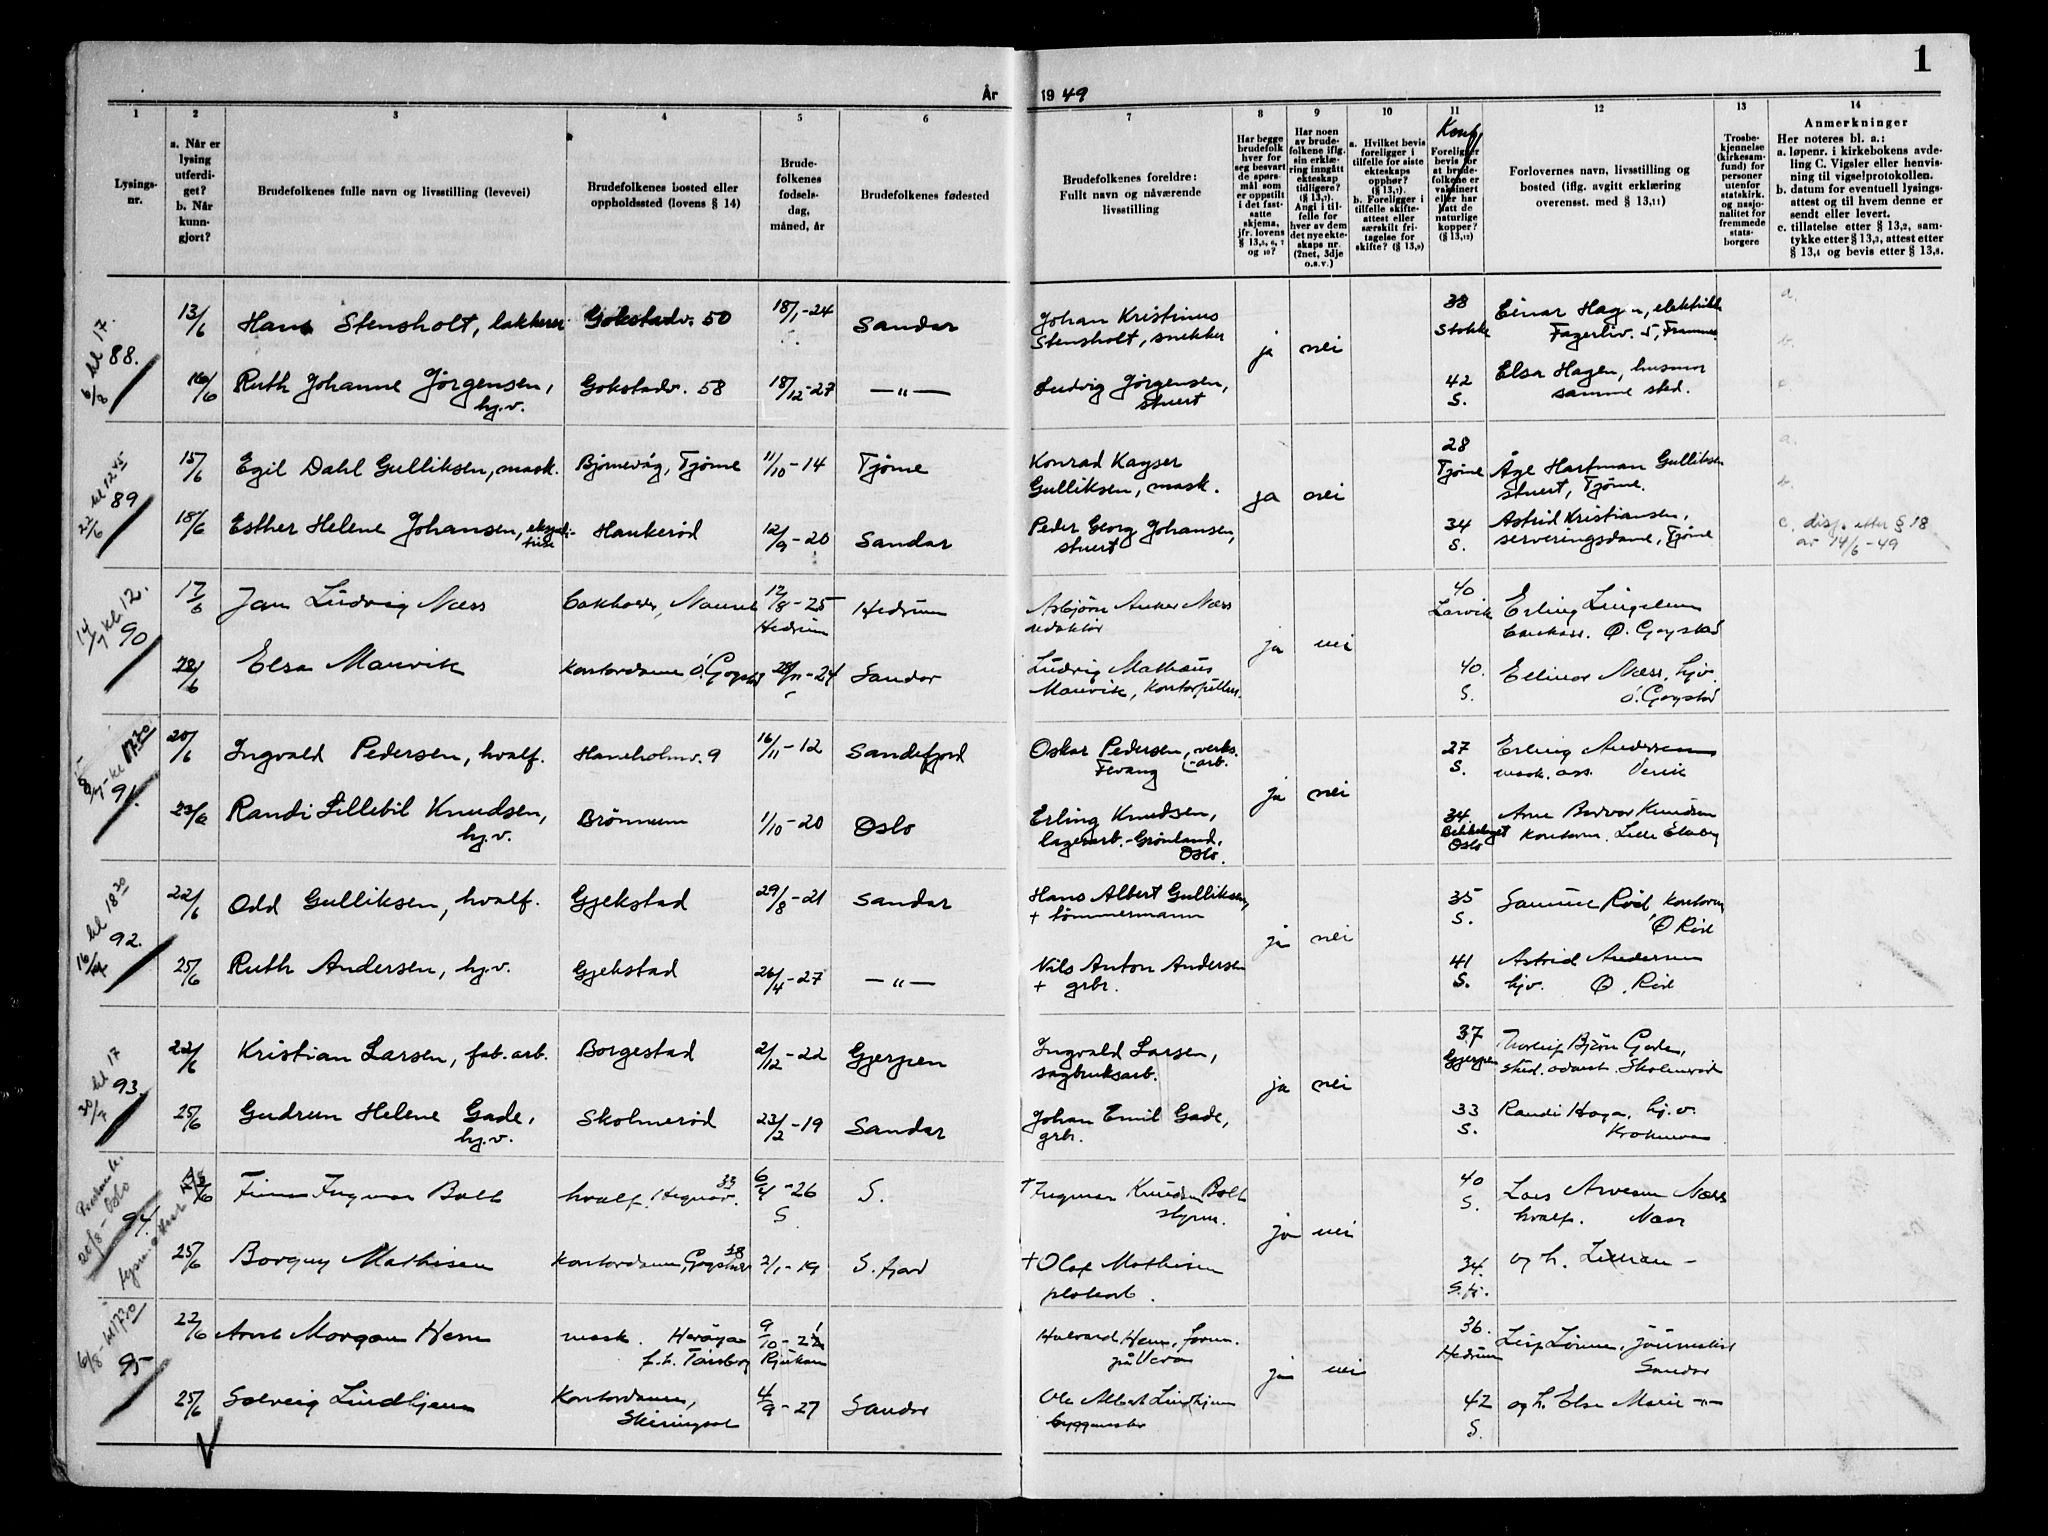 1
År 1949
1 2 3 4 5 6 7 8 9 10 11 12 13 14
Lysings-
nr.
a. Når er
lysing
utferdi-
get?
b. Når
kunn-
gjort?
Brudefolkenes fulle navn og livsstilling (levevei)
Brudefolkenes bosted eller
oppholdssted (lovens § 14)
Brude-
folkenes
fødsels-
dag,
måned, år
Brudefolkenes fødested
Brudefolkenes foreldre:
Fullt navn og nåværende
livsstilling
Har begge
brudefolk
hver for
seg besvart
de spørs-
mål som
er oppstilt
i det fast-
satte
skjema,
jfr. lovens
§ 13,5, 6, 7
og 10?
Har noen
av brude-
folkene iflg.
sin erklæ-
ring inngått
ekteskap
tidligere?
(§ 13,7).
Angi i til-
felle for
hver av dem
det nye ekte-
skaps nr.
(2net, 3dje
o.s.v.)
a. Hvilket bevis
foreligger i
tilfelle for siste
ekteskaps
opphør?
(§ 13,7).
b. Foreligger i
tilfelle skifte-
attest eller
særskilt fri-
tagelse for
skifte? (§ 13,9)
Konf
Foreligger
bevis for
at brude-
folkene er
vaksinert
eller har
hatt de
naturlige
kopper?
(§ 13,12)
Forlovernes navn, livsstilling og
bosted (iflg. avgitt erklæring
overensst. med § 13,11)
Trosbe-
kjennelse
(kirkesam-
fund) for
personer
utenfor
statskirk.
og nasjo-
nalitet for
fremmede
stats-
borgere
Anmerkninger
Her noteres bl. a.:
a. løpenr. i kirkebokens avde-
ling C. Vigsler eller henvis-
ning til vigselprotokollen.
b. datum for eventuell lysings-
attest og til hvem denne er
sendt eller levert.
c. tillatelse etter § 13,2, sam-
tykke etter § 13,3, attest etter
§ 13,4 og bevis etter § 13,8.
6/8 kl 17.
88.
13/6 Hans Stensholt, lakkerer Gokstadv. 50 18/1-24 Sandar
Johan Kristinus
Stensholt, snekker
ja nei
38
Stokke
Einar Hagen,
Fagerliv. 5,
a.
b.
c.
16/6 Ruth Johanne Jørgensen,
hj.v.
Gokstadv. 58 18/12-27 —"—
Ludvig Jørgensen,
stuert
42
S.
Elsa Hagen, husmor
samme sted.
kl 12 45
89
15/6 Egil Dahl Gulliksen, mask. Bjørnevåg, Tjøme 11/10-14 Tjøme
Konrad Kayser
Gulliksen, mask.
ja nei
28
Tjøme
Åge Hartman Gulliksen
stuert, Tjøme.
a.
b.
18/6 Esther Helene Johansen, Haukerød 12/9-20 Sandar
Peder Georg Johansen,
stuert
34
S.
Astrid Kristiansen,
serveringsdame, Tjøme
c. disp. etter § 18
av 14/6-49
14/7 kl. 12.
90
17/6 Jan Ludvig Næss 12/8-25 Hedrum
Hedrum
Asbjørn Anker Næss
redaktør
ja nei
40
Larvik
Erling
Ø. Gogstad
Elsa Mauvik kontordame Ø. Gogstad 28/11-24 Sandar
Ludvig Mathæus
Mauvik,
40.
S.
Ellinor Næss, hjv.
Ø. Gogstad
kl 17 30
91.
20/6 Ingvald Pedersen, hvalf. Haneholmv. 9 16/11-12 Sandefjord
Oskar Pedersen, verks.
Fevang -arb.
ja nei
27
S.
Erling Andersen
mask. ass.
23/6 Randi Lillebil Knudsen,
hj.v.
Brönnum 1/10-20 Oslo
Erling Knudsen,
lagerarb. - Grønland,
Oslo.
34.
Bekkelaget
Oslo
Arne Knudsen
16/7 kl 18 30
92.
22/6 Odd Gulliksen, hvalf. Gjekstad 29/8-21 Sandar
Hans Albert Gulliksen,
+ tømmermann
ja nei
35
S.
Rød
Ø Rød
25/6 Ruth Andersen, hj.v. Gjekstad 26/4-27 —"—
Nils Anton Andersen
+ grbr.
41
S.
Astrid Andersen
hjv. Ø. Rød
30/7 kl 17
93.
22/6 Kristian Larsen, fab.arb. Borgestad 2/12-22 Gjerpen
Ingvald Larsen,
sagbruksarb.
ja nei
37
Gjerpen
Bjørn Gade,
25/6 Gudrun Helene Gade,
hj.v.
Skolmerød 23/2-19 Sandar
Johan Emil Gade,
grbr.
33
S.
Randi Haga, hj.v.
20/8 - Oslo
94.
Finn Ingmar Bolt hvalf. 33 6/4-26 S.
S
+ Ingmar Knudsen Bolt
styrm.
ja nei
40
S.
Lars Næss
hvalf. Næss
25/6 Borgny Mathisen kontordame, 38 2/1-19 S. fjord
+ Olaf Mathisen
34.
og h.
6/8 - kl 17 30
95
22/6 Arnt Morgan Hem mask. Herøya
f. h. Tønsberg
9/10-21
Rjukan
Halvard Hem, form.
ja nei
36.
Hedrum
journalist
Sandar
25/6 Solveig Lindhjem Kontordame,
Skiringssal
4/9-27 Sandar
Ole Albert Lindhjem
byggmester
42
S.
og h. Else Marie —"—